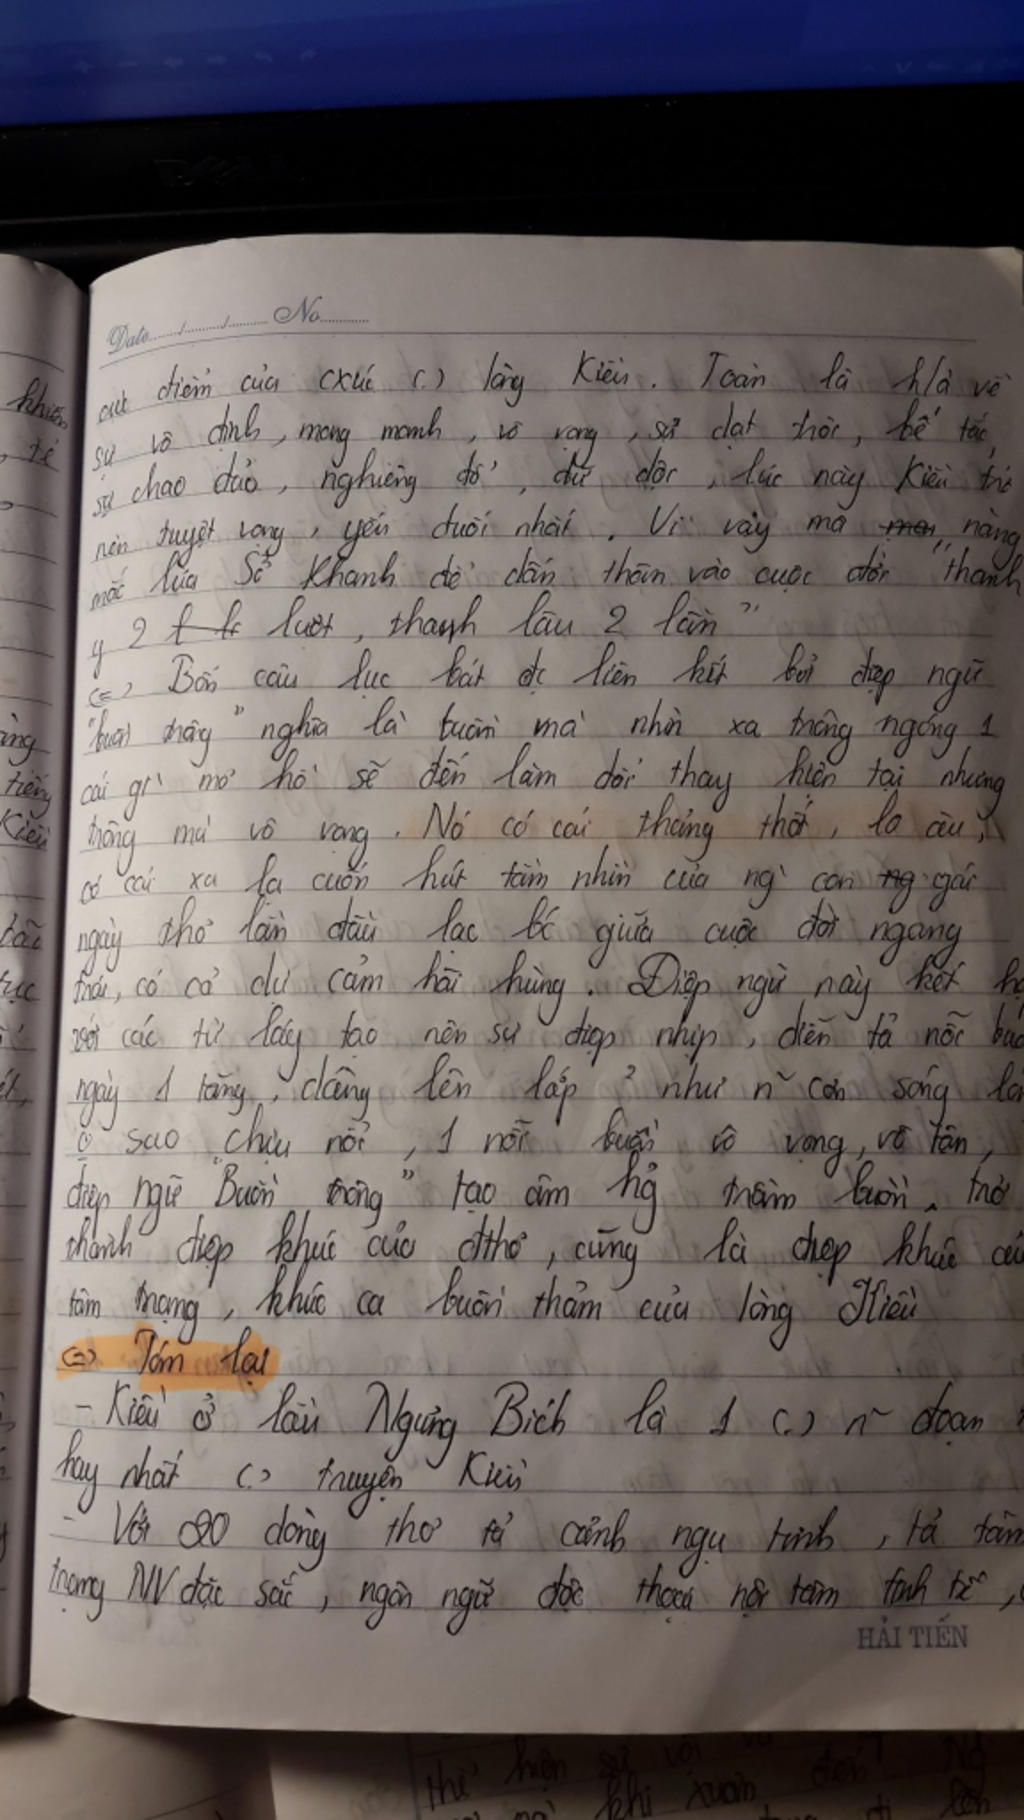 DELL
Date...../...../..... No..........
cực điểm của cxúc (.) lòng Kiều. Toàn là h/ả về
sự vô định, mong manh, vô vọng, sự dạt trôi, bế tắc,
sự chao đảo, nghiêng đổ, dữ dội, lúc này Kiều trở
nên tuyệt vọng, yếu đuối nhất. Vì vậy mà nàng
mắc lừa Sở Khanh để dấn thân vào cuộc đời "thanh
y 2 lượt, thanh lâu 2 lần"
(=) Bốn câu lục bát đc liên kết bởi điệp ngữ
"buồn trông" nghĩa là buồn mà nhìn xa trông ngóng 1
cái gì mơ hồ sẽ đến làm đổi thay hiện tại nhưng
trông mà vô vọng. Nó có cái thảng thốt, lo âu,
có cái xa lạ cuốn hút tầm nhìn của ng` con gái
ngây thơ lần đầu lạc bc giữa cuộc đời ngang
trái, có cả dự cảm hãi hùng. Điệp ngữ này kết
với các từ láy tạo nên sự điệp nhịp, diễn tả nỗi
ngày 1 tăng, dâng lên lớp ² như n~ con sóng
sao chịu nổi, 1 nỗi buồn vô vọng, vô tận,
điệp ngữ "Buồn trông" tạo âm hg trầm buồn, trở
thành điệp khúc của đthơ, cũng là điệp khúc
tâm trạng, khúc ca buồn thảm của lòng Kiều
(=) Tóm lại
- Kiều ở lầu Ngưng Bích là 1 (.) n~ đoạn
hay nhất (.) truyện Kiều
- Với 20 dòng thơ tả cảnh ngụ tình, tả tâm
trạng NV đặc sắc, ngôn ngữ độc thoại nội tâm tinh tế,
HẢI TIẾN